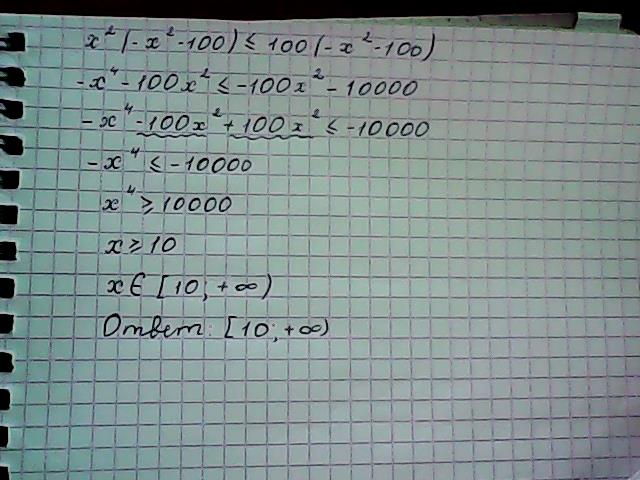 x²(-x²-100) ≤ 100(-x²-100)
-x⁴-100x² ≤ -100x²-10000
-x⁴-100x²+100x² ≤ -10000
-x⁴ ≤ -10000
x⁴ ≥ 10000
x ≥ 10
x ∈ [10; +∞)
Ответ: [10; +∞)